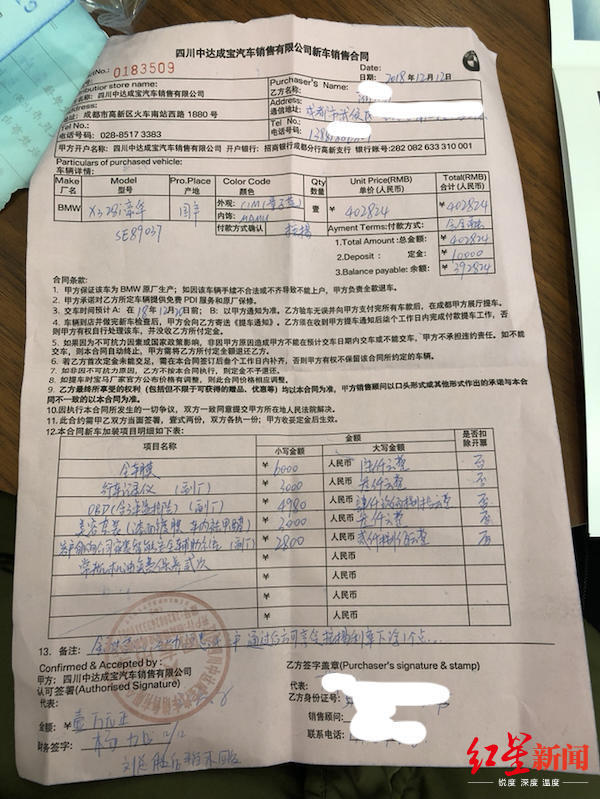 四川中达成宝汽车销售有限公司新车销售合同
No.: 0183509
Date:
日期: 2018/12/12
butor store name:
名称: 四川中达成宝汽车销售有限公司
Purchaser's Name:
乙方名称:
address:
地址: 成都市高新区火车南站西路 1880 号
Address:
通信地址: 成都市武侯区
Tel No.:
电话号码: 028-8517 3383
Tel No.:
电话号码:
甲方开户名称: 四川中达成宝汽车销售有限公司 开户银行: 招商银行成都分行高新支行 银行账号:282 082 633 310 001
Particulars of purchased vehicle:
车辆详情:
Make
厂名
Model
型号
Pro.Place
产地
Color Code
颜色
Qty
数量
Unit Price(RMB)
单价 (人民币)
Total(RMB)
合计 (人民币)
BMW
外观:
内饰:
壹
¥ 402824
¥402824
SE89037
付款方式确认
Ayment Terms:付款方式:
1.Total Amount :总金额: ¥402824
2.Deposit : 定金: 10000
3.Balance payable: 余额: ¥392824
合同条款:
1. 甲方保证该车为 BMW 原厂生产; 如因该车辆手续不合法或不齐导致不能上户, 甲方负责全款退车。
2. 甲方承诺对乙方所定车辆提供免费 PDI 服务和原厂保修。
3. 交车时间预计 A: 在 18年12月 日前; B: 以甲方通知为准。乙方验车无误并向甲方支付完所有车款后, 在成都甲方展厅提车。
4. 车辆到店并做完新车检查后, 甲方会向乙方寄送《提车通知》。乙方须在收到甲方提车通知后柒个工作日内完成付款提车工作, 否
则甲方有权自行处理该车, 并没收乙方所付定金。
5. 如果因为不可抗力因素或国家政策影响, 非因甲方原因造成甲方不能在预计交车日期内交车或不能交车, 甲方不承担违约责任。如不能
交车, 则本合同自动终止, 甲方需将乙方所付全额定金还乙方。
6. 若乙方首次定金未能交足, 需在本合同签订后叁个工作日内补齐, 否则甲方有权不保留该合同所约定的车辆。
7. 如非因不可抗力原因, 乙方不按本合同执行, 则定金不予退还。
8. 如提车时宝马厂家官方公布价格有调整, 则此合同价格相应调整。
9. 乙方最终所享受的权利 (包括但不限于可获得的赠品、优惠等) 均以本合同为准, 甲方销售顾问以口头形式或其他形式作出的承诺与本合
同不一致的以本合同为准。
10.因执行本合同所发生的一切争议, 双方一致同意提交甲方所在地人民法院解决。
11.此合约需甲乙双方当面签署, 壹式两份, 双方各执一份; 甲方收妥定金后生效。
12.本合同新车加装项目明细如下表:
项目名称
金额
是否扣
除开票
小写金额
大写金额
全车膜 ¥ 6000 人民币 陆仟元整 否
行车记录仪 (副厂) ¥ 3000 人民币 叁仟元整 否
¥ 4980 人民币 肆仟玖佰捌拾元整 否
¥ 3000 人民币 叁仟元整 否
¥ 2800 人民币 贰仟捌佰元整 否
¥ 人民币
¥ 人民币
¥ 人民币
¥ 人民币
13. 备注:
Confirmed & Accepted by :
甲方: 四川中达成宝汽车销售有限公司
认可签署(Authorised Signature)
代表:
乙方签字盖章(Purchaser's signature & stamp)
代表:
乙方身份证号:
销售顾问:
联系电话:
金额: ¥ 壹万元正
财务签字: 12/12
红星新闻
锐度 深度 温度